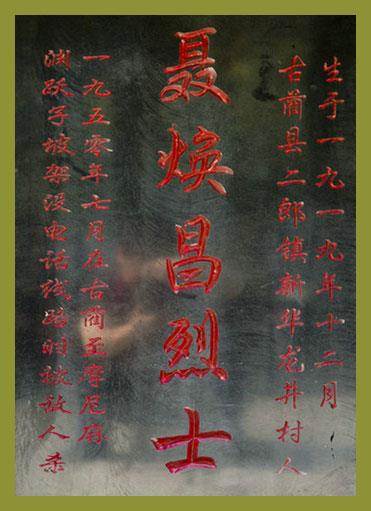 生于一九一九年十二月
古蔺县二郎镇新华龙井村人
聂焕昌烈士
一九五零年七月在古蔺至摩尼麻
渊跃子坡架设电话线路时被敌人杀